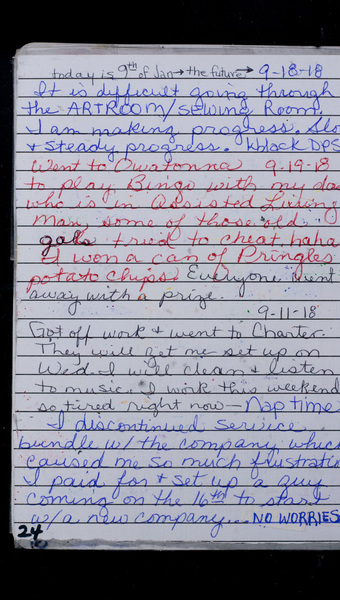 today is 9th of Jan → the future → 9-18-18
It is difficult going through
the ARTROOM/SEWING Room.
I am making progress. Slo
& steady progress. ↳black DPS
Went to Owatonna 9-19-18
to play Bingo with my da
who is in Assisted Living
Man, some of those old
gals tried to cheat, haha
I won a can of Pringles
potato chips. Everyone went
away with a prize.
9-11-18
Got off work & went to Charter.
They will get me set up on
Wed. I will clean & listen
to music. I work this weekend
so tired right now — Nap time
I discontinued service
bundle w/ the company which
caused me so much frustratio
I paid for & set up a guy
coming on the 16th to start
w/a new company... NO WORRIES
24